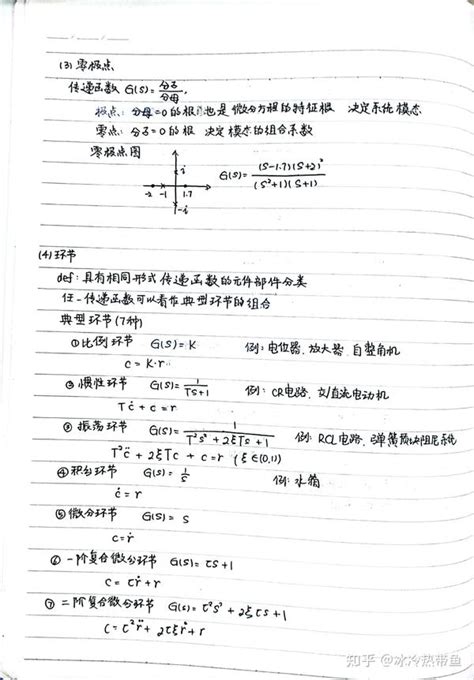 (3) 零极点
传递函数 G(s)=分子/分母,
极点: 分母=0的根 也是微分方程的特征根 决定系统模态
零点: 分子=0的根 决定模态的组合系数
零极点图
i
-2 -1 1.7
-i
G(s)=(s-1.7)(s+2)²/(s²+1)(s+1)
(4) 环节
def: 具有相同形式传递函数的元件部件分类
任一传递函数可以看作典型环节的组合
典型环节(7种)
①比例环节 G(s)=K 例: 电位器. 放大器. 自整角机
c=K·r
②惯性环节 G(s)=1/(Ts+1) 例: CR电路. 交/直流电动机
Tċ+c=r
③振荡环节 G(s)=1/(T²s²+2ξTs+1) 例: RCL电路. 弹簧质块阻尼系统
T²c̈+2ξTċ+c=r (ξ∈(0,1))
④积分环节 G(s)=1/s 例: 水箱
ċ=r
⑤微分环节 G(s)=s
c=ṙ
⑥一阶复合微分环节 G(s)=τs+1
c=τṙ+r
⑦二阶复合微分环节 G(s)=τ²s²+2ξτs+1
c=τ²r̈+2τξṙ+r
知乎 @冰冷热带鱼